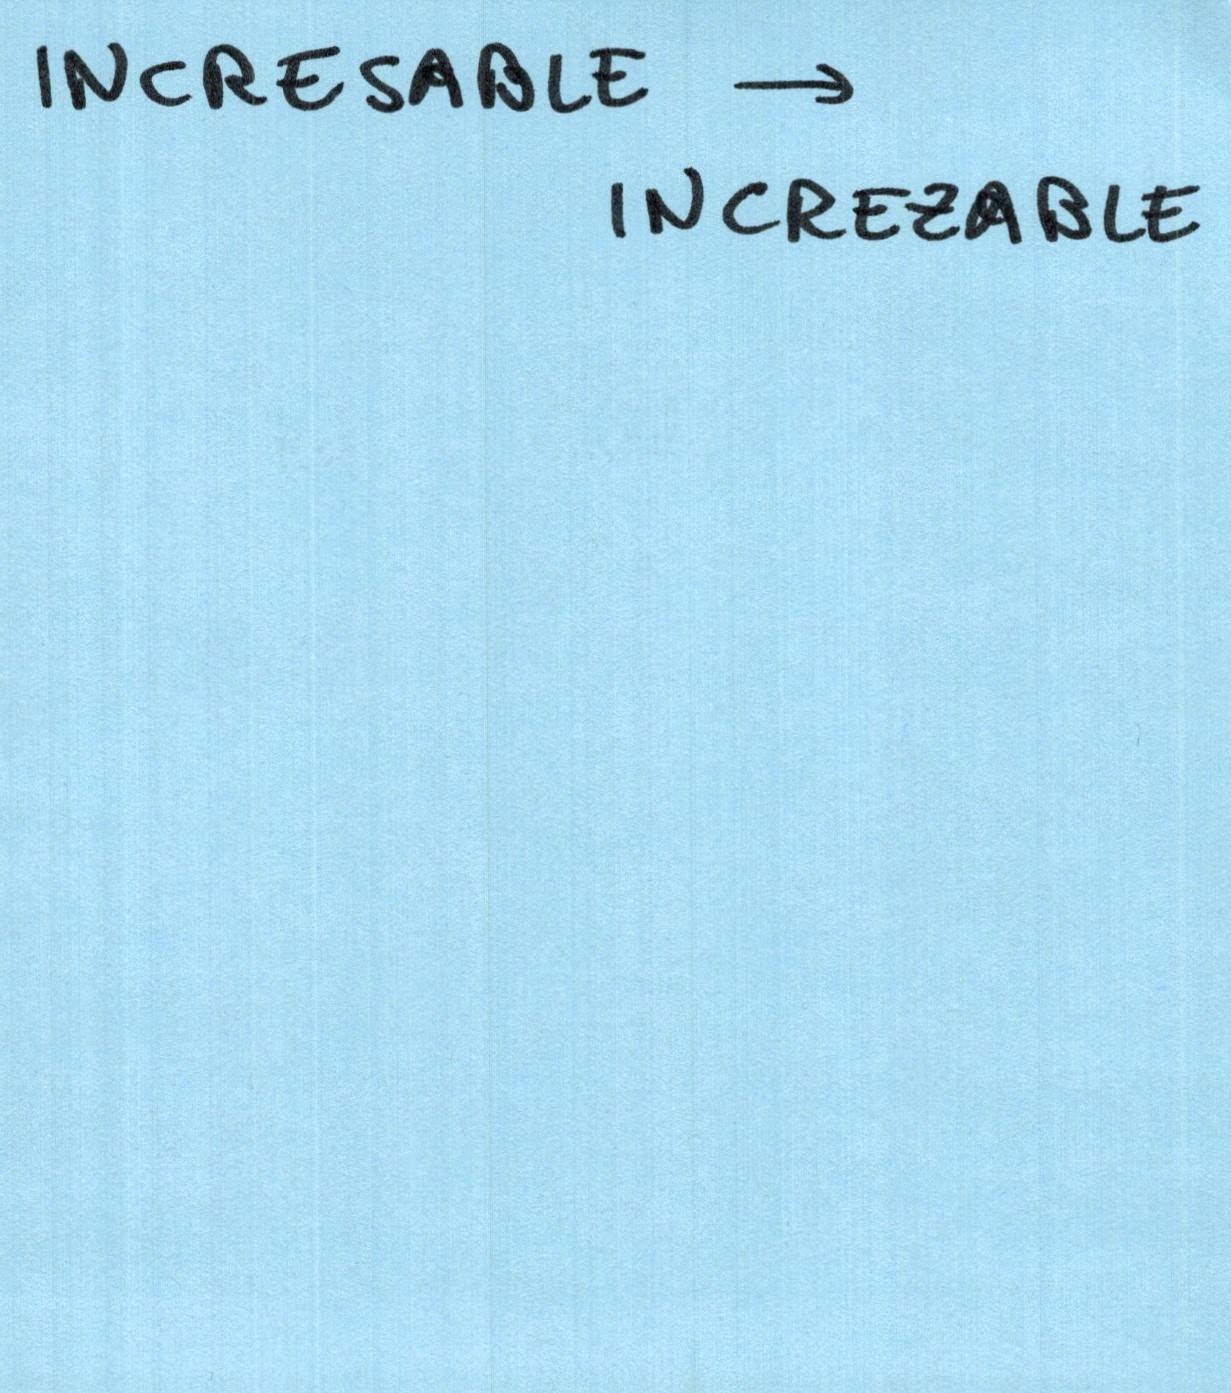 INCRESABLE →
INCREZABLE